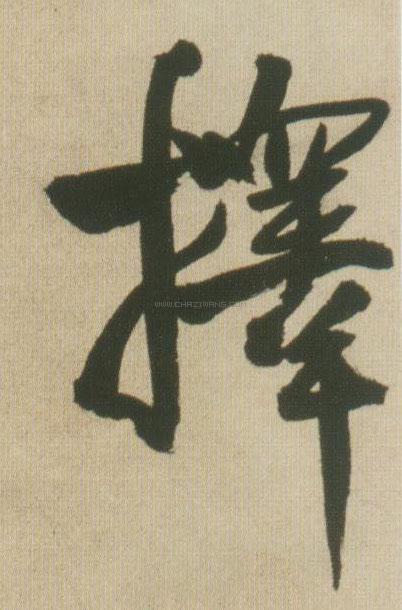 擇
WWW.CHAZIWANG.COM